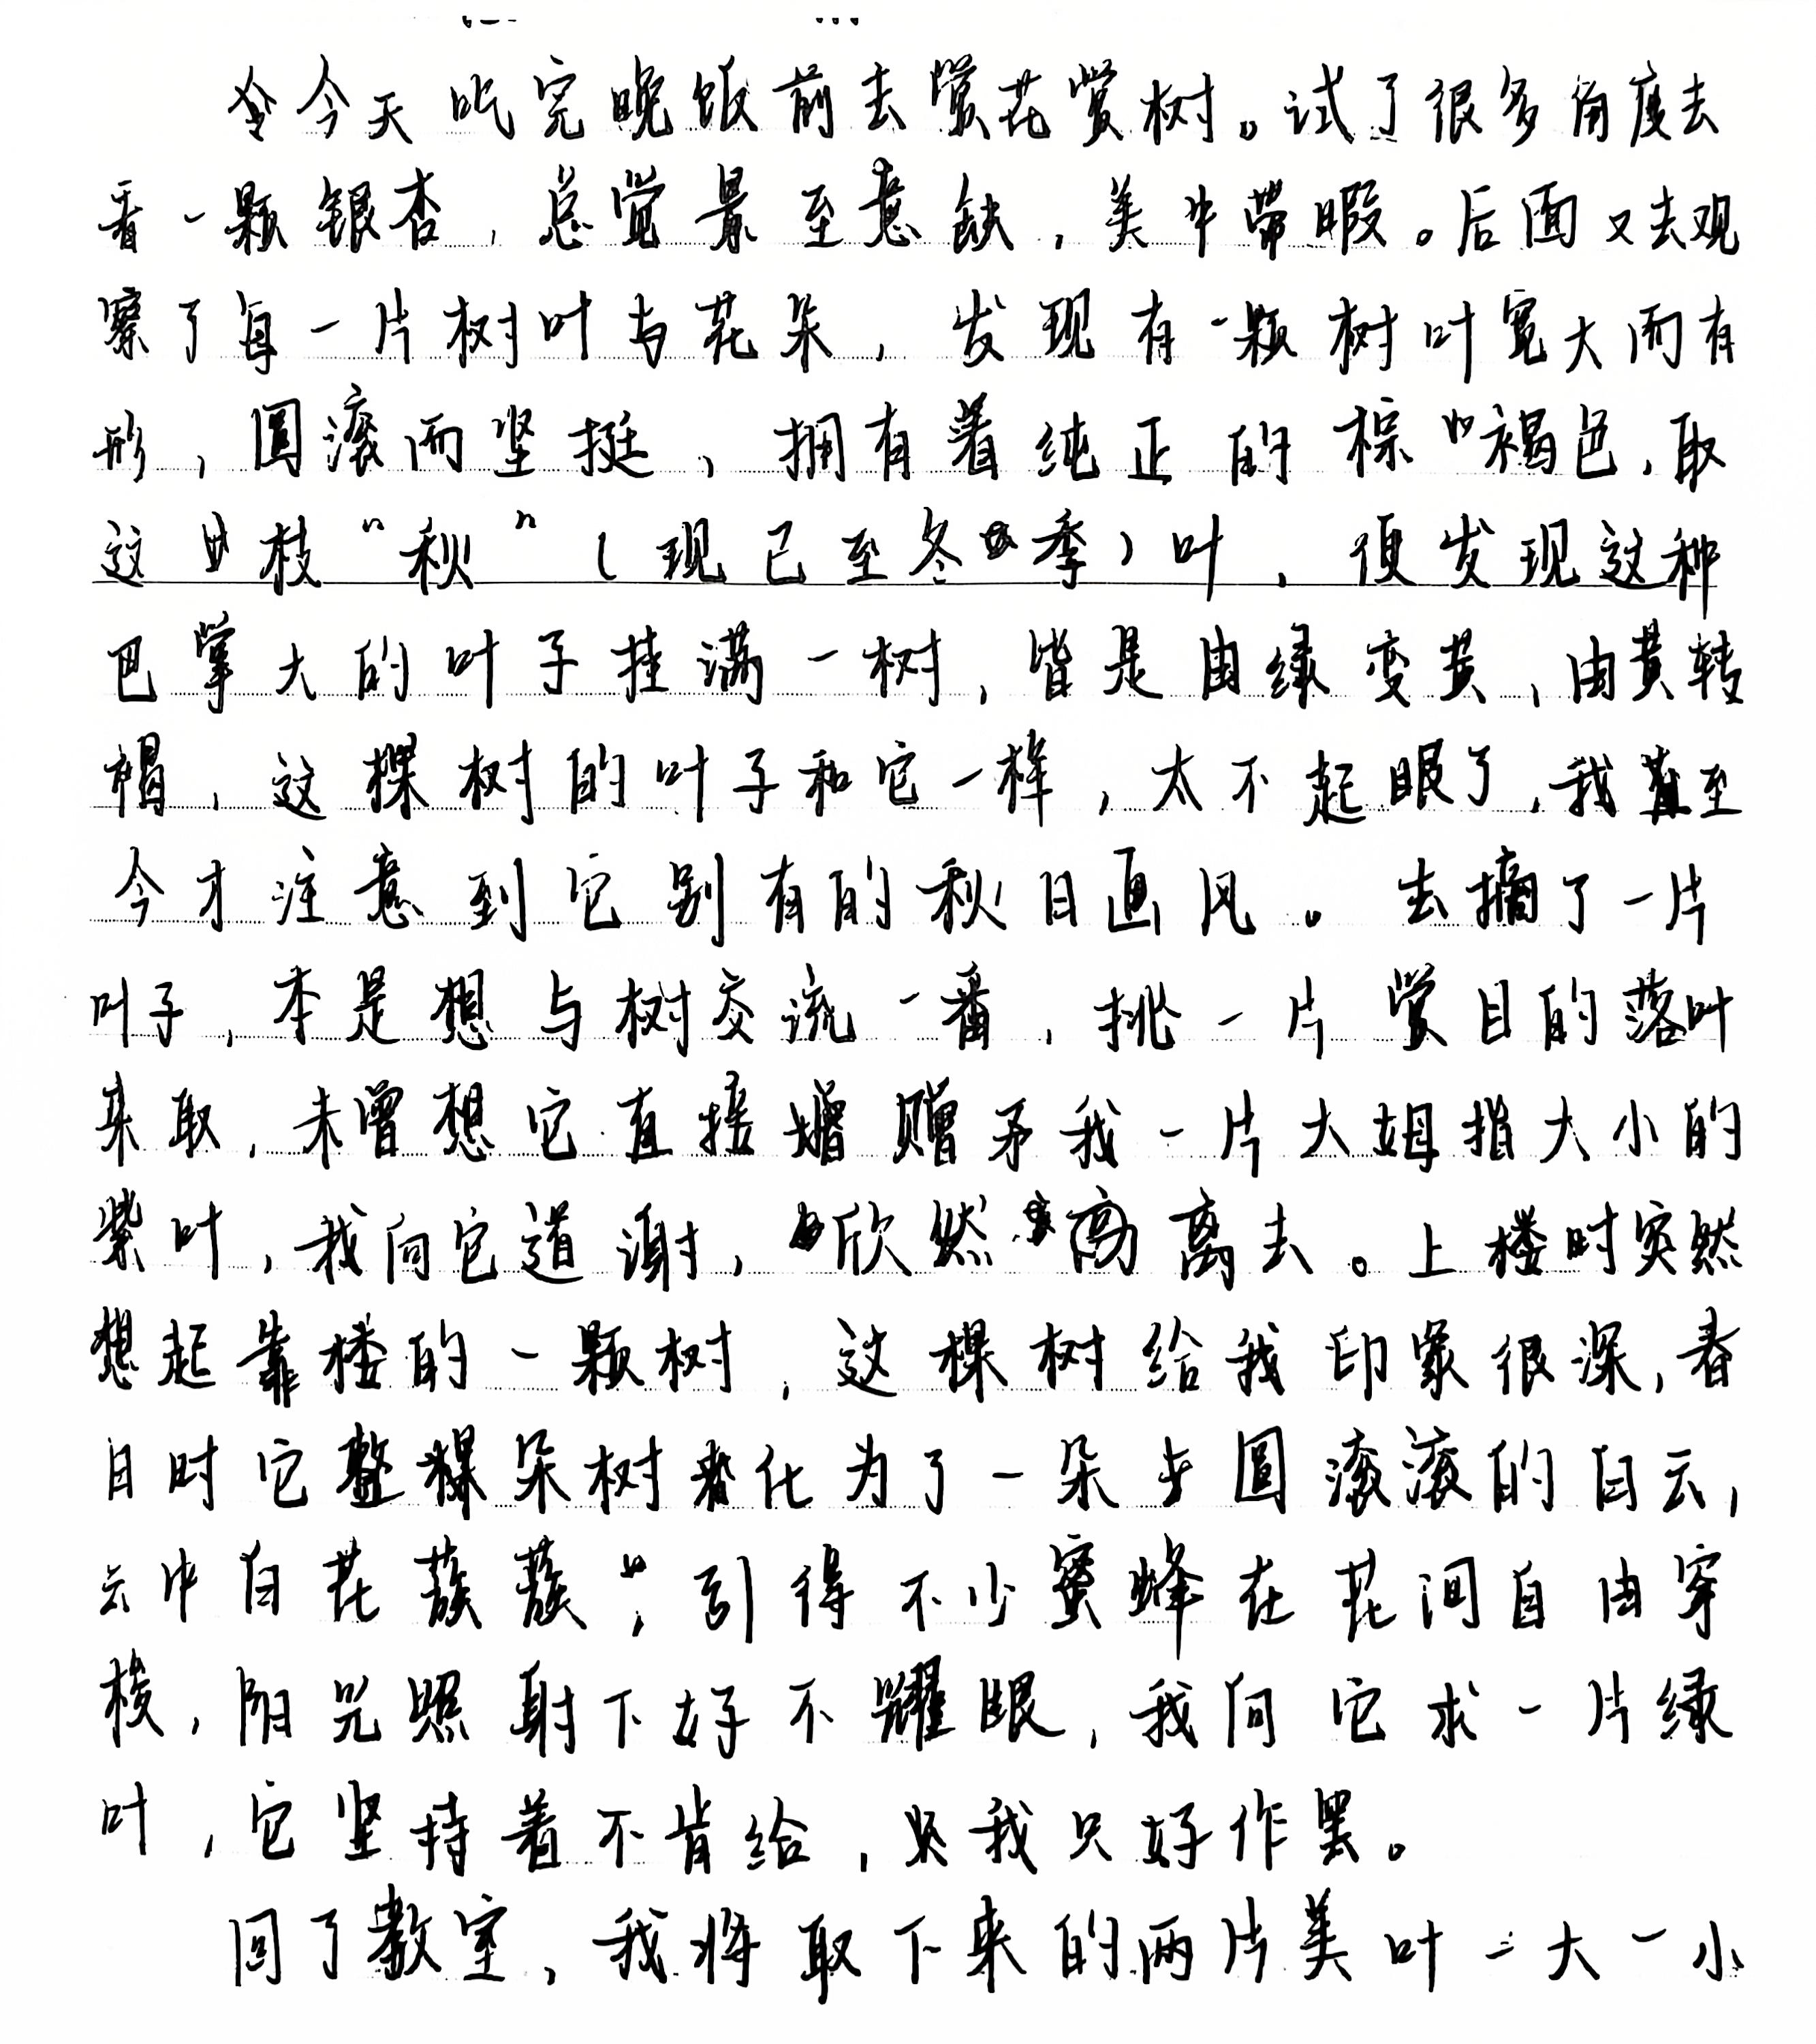 今天吃完晚饭前去赏花赏树。试了很多角度去
看一颗银杏，总觉景至意缺，美中带暇。后面又去观
察了每一片树叶与花朵，发现有一颗树叶宽大而有
形，圆滚而坚挺，拥有着纯正的棕褐色，取
这枝“秋”（现已至冬季）叶，便发现这种
巴掌大的叶子挂满一树，皆是由绿变黄，由黄转
褐，这棵树的叶子和它一样，太不起眼了，我直至
今才注意到它别有的秋日画风。去摘了一片
叶子，本是想与树交流一番，挑一片赏目的落叶
来取，未曾想它直接赠予我一片大姆指大小的
紫叶，我向它道谢，欣然离去。上楼时突然
想起靠楼的一颗树，这棵树给我印象很深，春
日时它整棵朵树化为了一朵圆滚滚的白云，
云中白花蔟蔟，引得不少蜜蜂在花间自由穿
梭，阳光照射下好不耀眼，我向它求一片绿
叶，它坚持着不肯给，我只好作罢。
回了教室，我将取下来的两片美叶一大一小